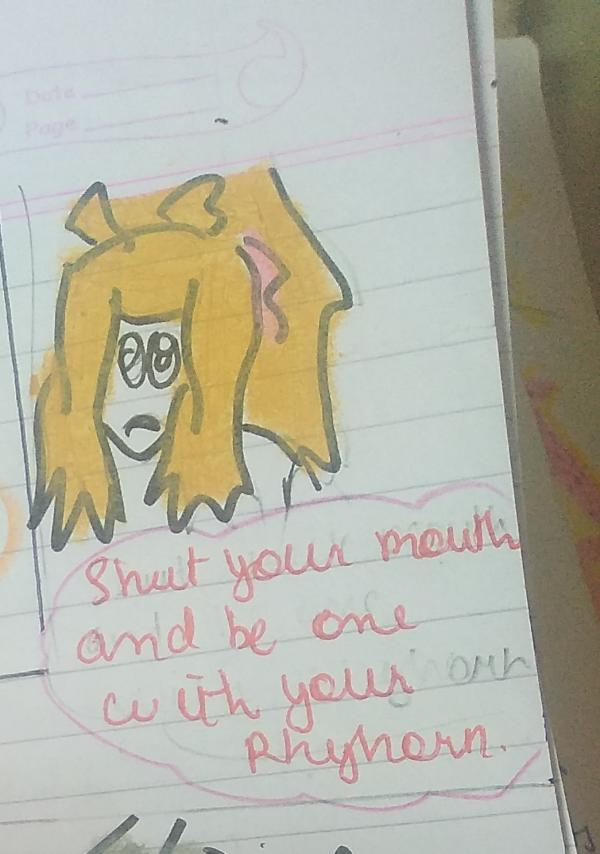 Date
Page
Shut your mouth
and be one
with your
Rhyhorn.